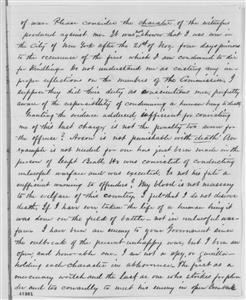 of war. Please consider the character of the witnesses
produced against me. It was shown that I was ever in
the City of New York after the 25th of Nov. four days previous
to the occurrence of the fires which I am condemned to die
for kindling. Do not understand me as casting any im-
proper reflections on the members of the Commission, I
suppose they did their duty as conscientious men properly
aware of the responsibility of condemning a human being to death.
Granting the evidence adduced sufficient for convicting
me of this last charge is not the penalty too severe for
the offense? Arson is not punishable with death. An
example is not needed for one has just been made in the
person of Capt Beall. He was convicted of conducting
unlawful warfare and was executed. Is not his fate a
sufficient warning to offenders? My blood is not necessary
to the welfare of this country. I feel that I do not deserve
death. If I have ever taken the life of a human being it
was done on the field of battle — not in unlawful war-
fare. I have been an enemy to your Government since
the outbreak of the present unhappy war but I have been an
open and honorable one. I am not a spy, or guerilla —
holding each character in abhorrence. The first as a
mercenary wretch and the last as one who strikes for plun-
der and too cowardly to meet his enemy in open
41981